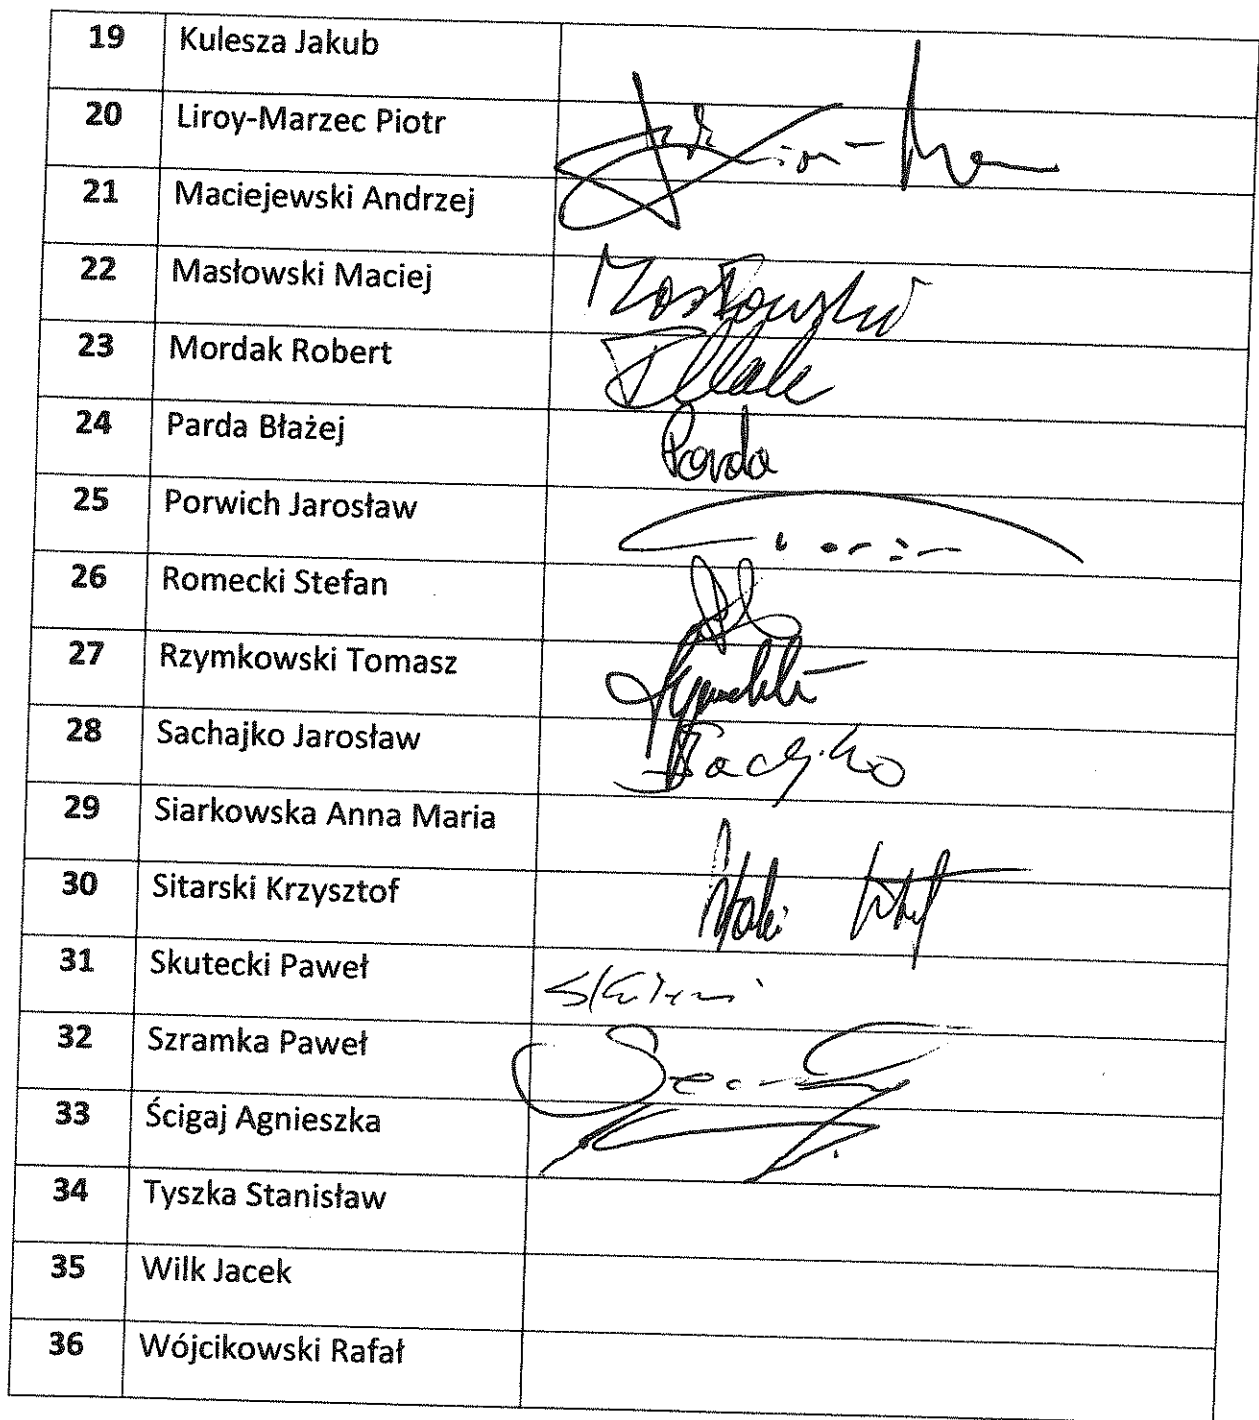 19 Kulesza Jakub
20 Liroy-Marzec Piotr
21 Maciejewski Andrzej
22 Masłowski Maciej Masłowski
23 Mordak Robert
24 Parda Błażej Parda
25 Porwich Jarosław
26 Romecki Stefan
27 Rzymkowski Tomasz
28 Sachajko Jarosław Sachajko
29 Siarkowska Anna Maria
30 Sitarski Krzysztof
31 Skutecki Paweł
32 Szramka Paweł
33 Ścigaj Agnieszka
34 Tyszka Stanisław
35 Wilk Jacek
36 Wójcikowski Rafał